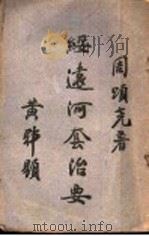 周頌堯著
綏遠河套治要
黃奮題